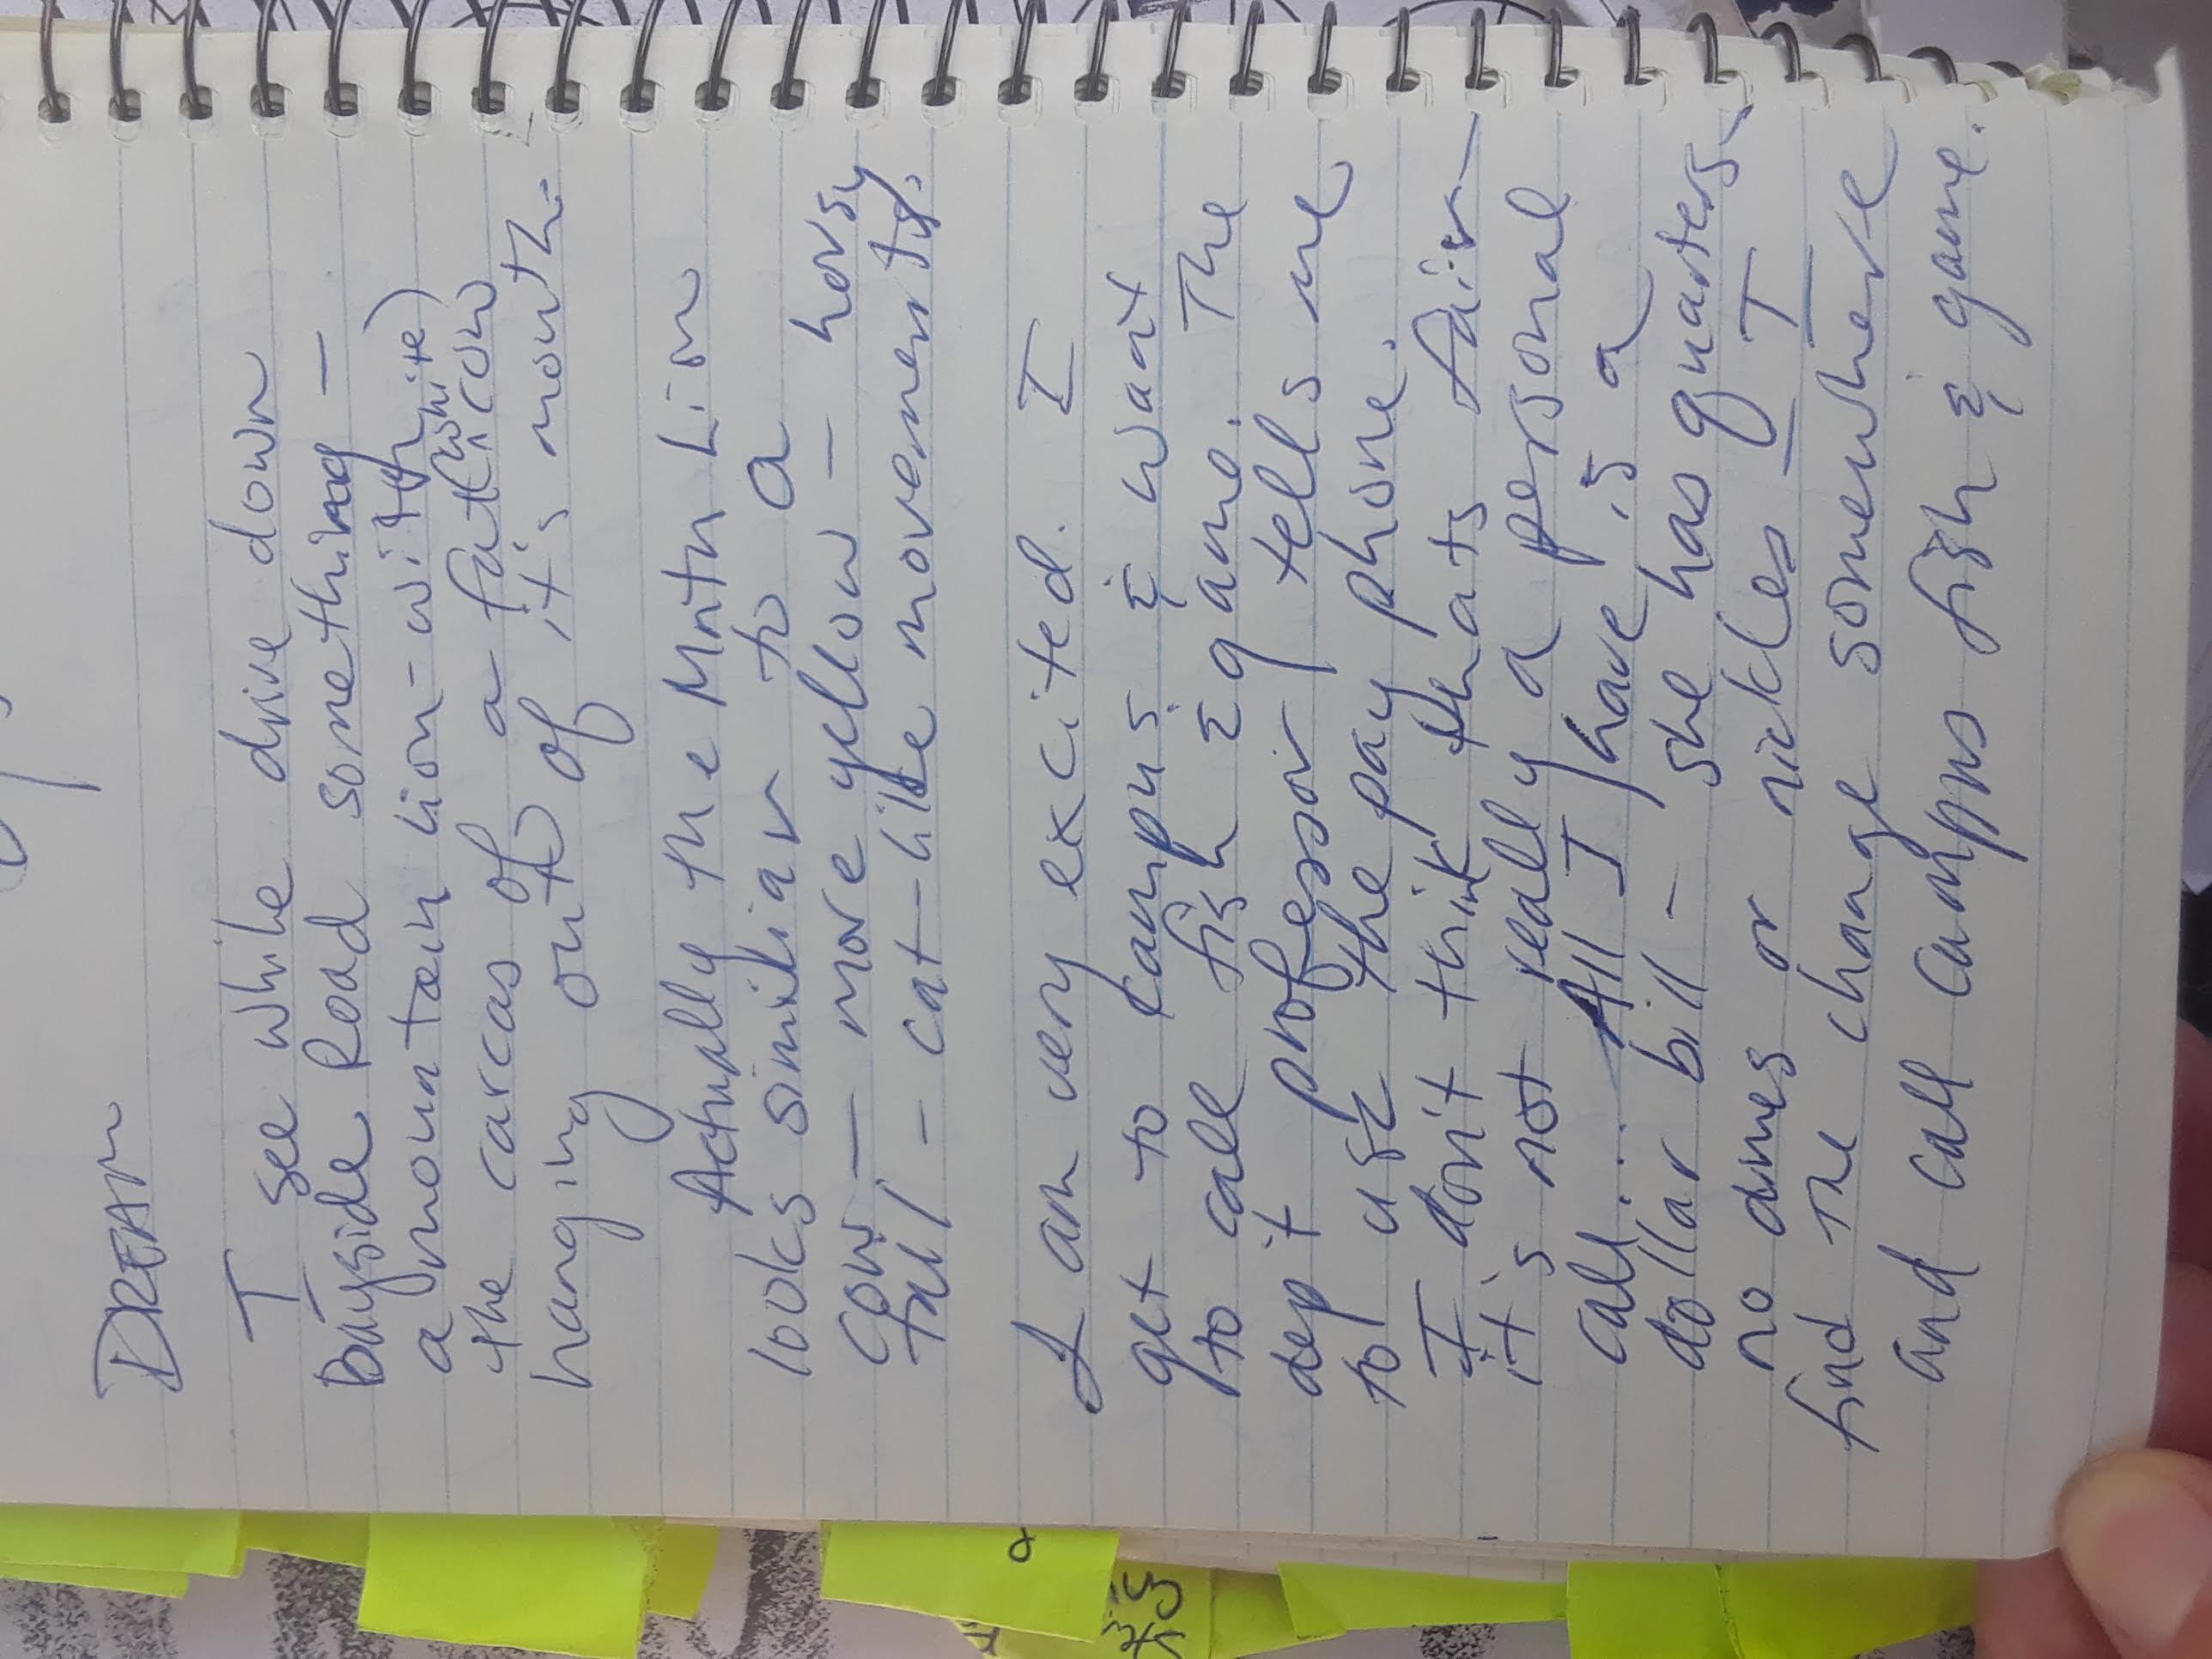 DREAM
I see while drive down
Bayside Road something -
a mountain lion - with
the carcas of a fat (white) cow
hanging out of it's mouth.
Actually the Mntn Lion
looks similiar to a
cow - more yellow - horsy
tail - cat-like movements.
I am very excited. I
get to campus & want
to call fish & game. The
dept professor tells me
to use the pay phone.
I don't think thats fair -
it's not really a personal
call... All I have is a
dollar bill - she has quarters
no dimes or nickles - I
find the change somewhere
and call campus fish & game.